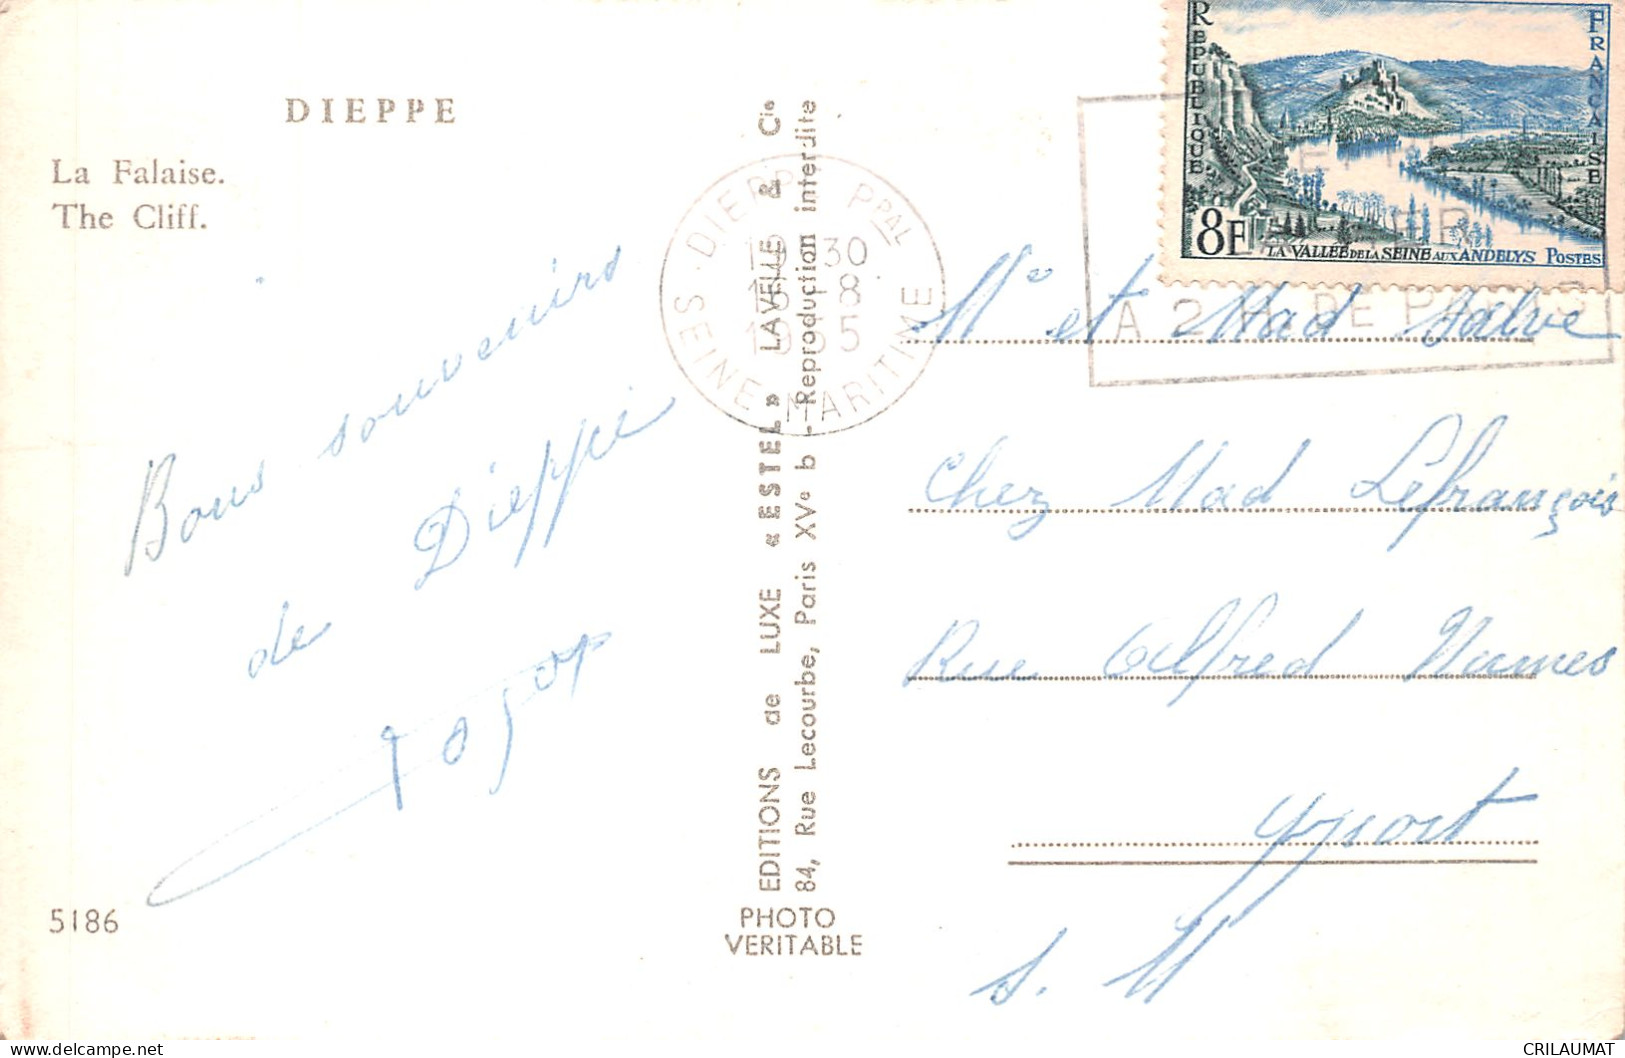 DIEPPE
La Falaise.
The Cliff.
Bons souvenirs
de Dieppe
5186
EDITIONS de LUXE « ESTEL » LAVELLE & Cie
84, Rue Lecourbe, Paris XVe b - Reproduction interdite
PHOTO
VERITABLE
DIEPPE PPAL
19 30
8
1955
SEINE MARITIME
REPUBLIQUE
FRANCAISE
8F
LA VALLÉE DE LA SEINE AUX ANDELYS POSTES
A 2 H. DE PARIS
Mr et Mad Halve
Chez Mad Lefrançois
Rue Alfred Nunes
Yport
S. M
CRILAUMAT